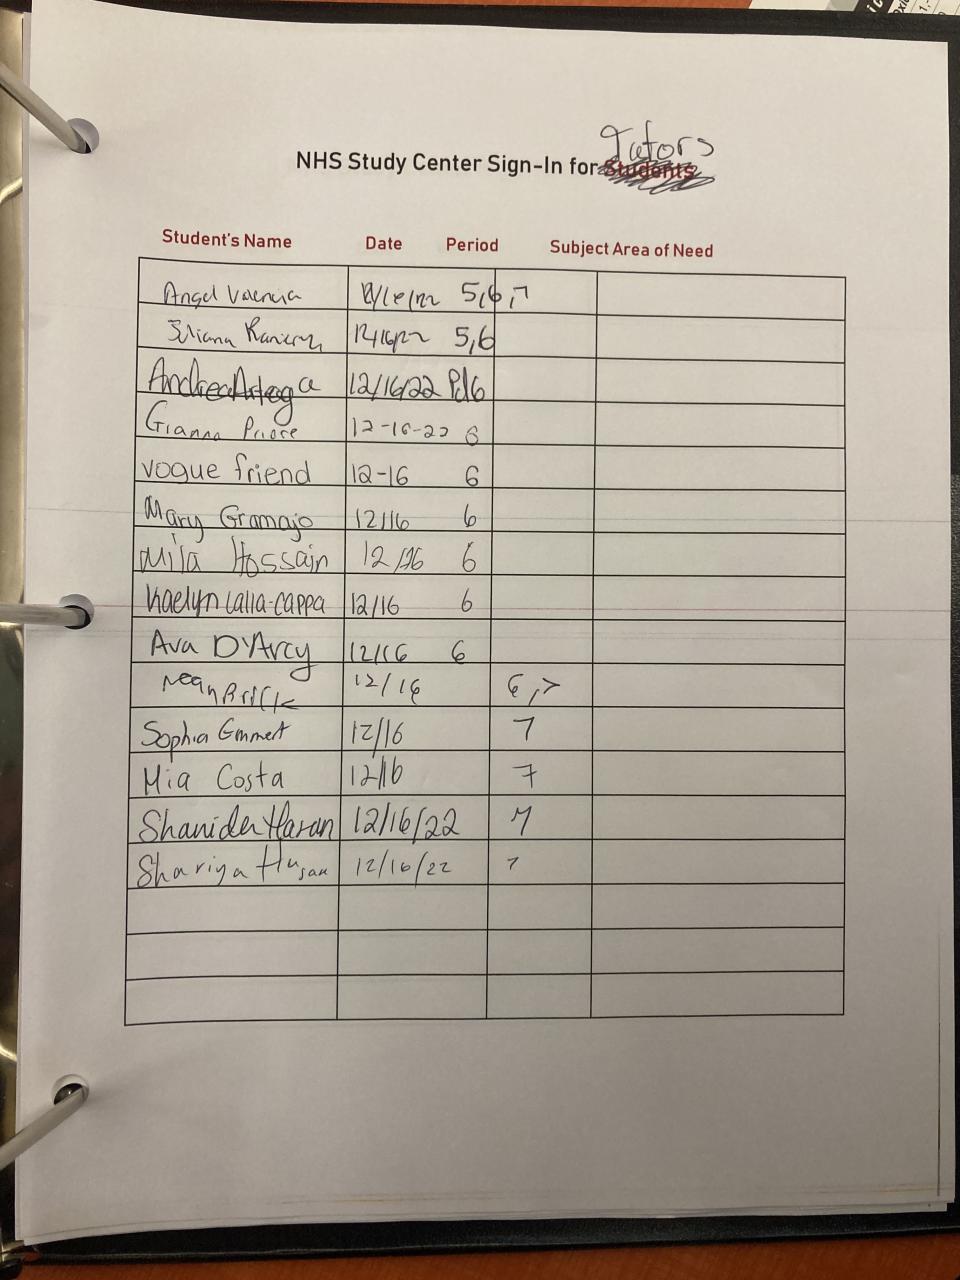 Tutors
NHS Study Center Sign-In for Students
Student's Name Date Period Subject Area of Need
Angel Valencia 12/16/22 5,6,7
12/16/22 5,6
Andrea Arteaga 12/16/22 Pd6
Gianna Priore 12-16-22 6
vogue friend 12-16 6
Mary Gramajo 12/16 6
Mila Hossain 12/16 6
Kaelyn Lalla-Cappa 12/16 6
Ava D'Arcy 12/16 6
12/16 6,7
Sophia Emmert 12/16 7
Mia Costa 12/16 7
Hasan 12/16/22 7
Shariya 12/16/22 7